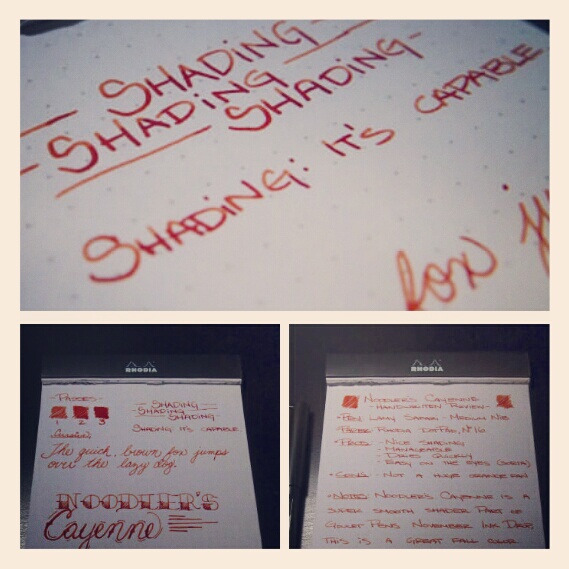 - SHADING -
- SHADING
SHADING -
SHADING: IT'S CAPABLE
fox ju
RHODIA
- PASSES -
1 2 3
- SHADING -
- SHADING -
SHADING -
SHADING: IT'S CAPABLE
The quick, brown fox jumps
over the lazy dog.
NOODLER'S
Cayenne
RHODIA
NOODLER'S CAYENNE
- HANDWRITTEN REVIEW -
- PEN: LAMY SAFARI - MEDIUM NIB
- PAPER: RHODIA DOTPAD, Nº16
- PROS: - NICE SHADING
- MANAGEABLE
- DRIES QUICKLY
- EASY ON THE EYES
- CONS: NOT A HUGE ORANGE FAN
- NOTES: NOODLER'S CAYENNE IS A
SUPER SMOOTH SHADER. PART OF
GOULET PENS NOVEMBER INK DROP.
THIS IS A GREAT FALL COLOR